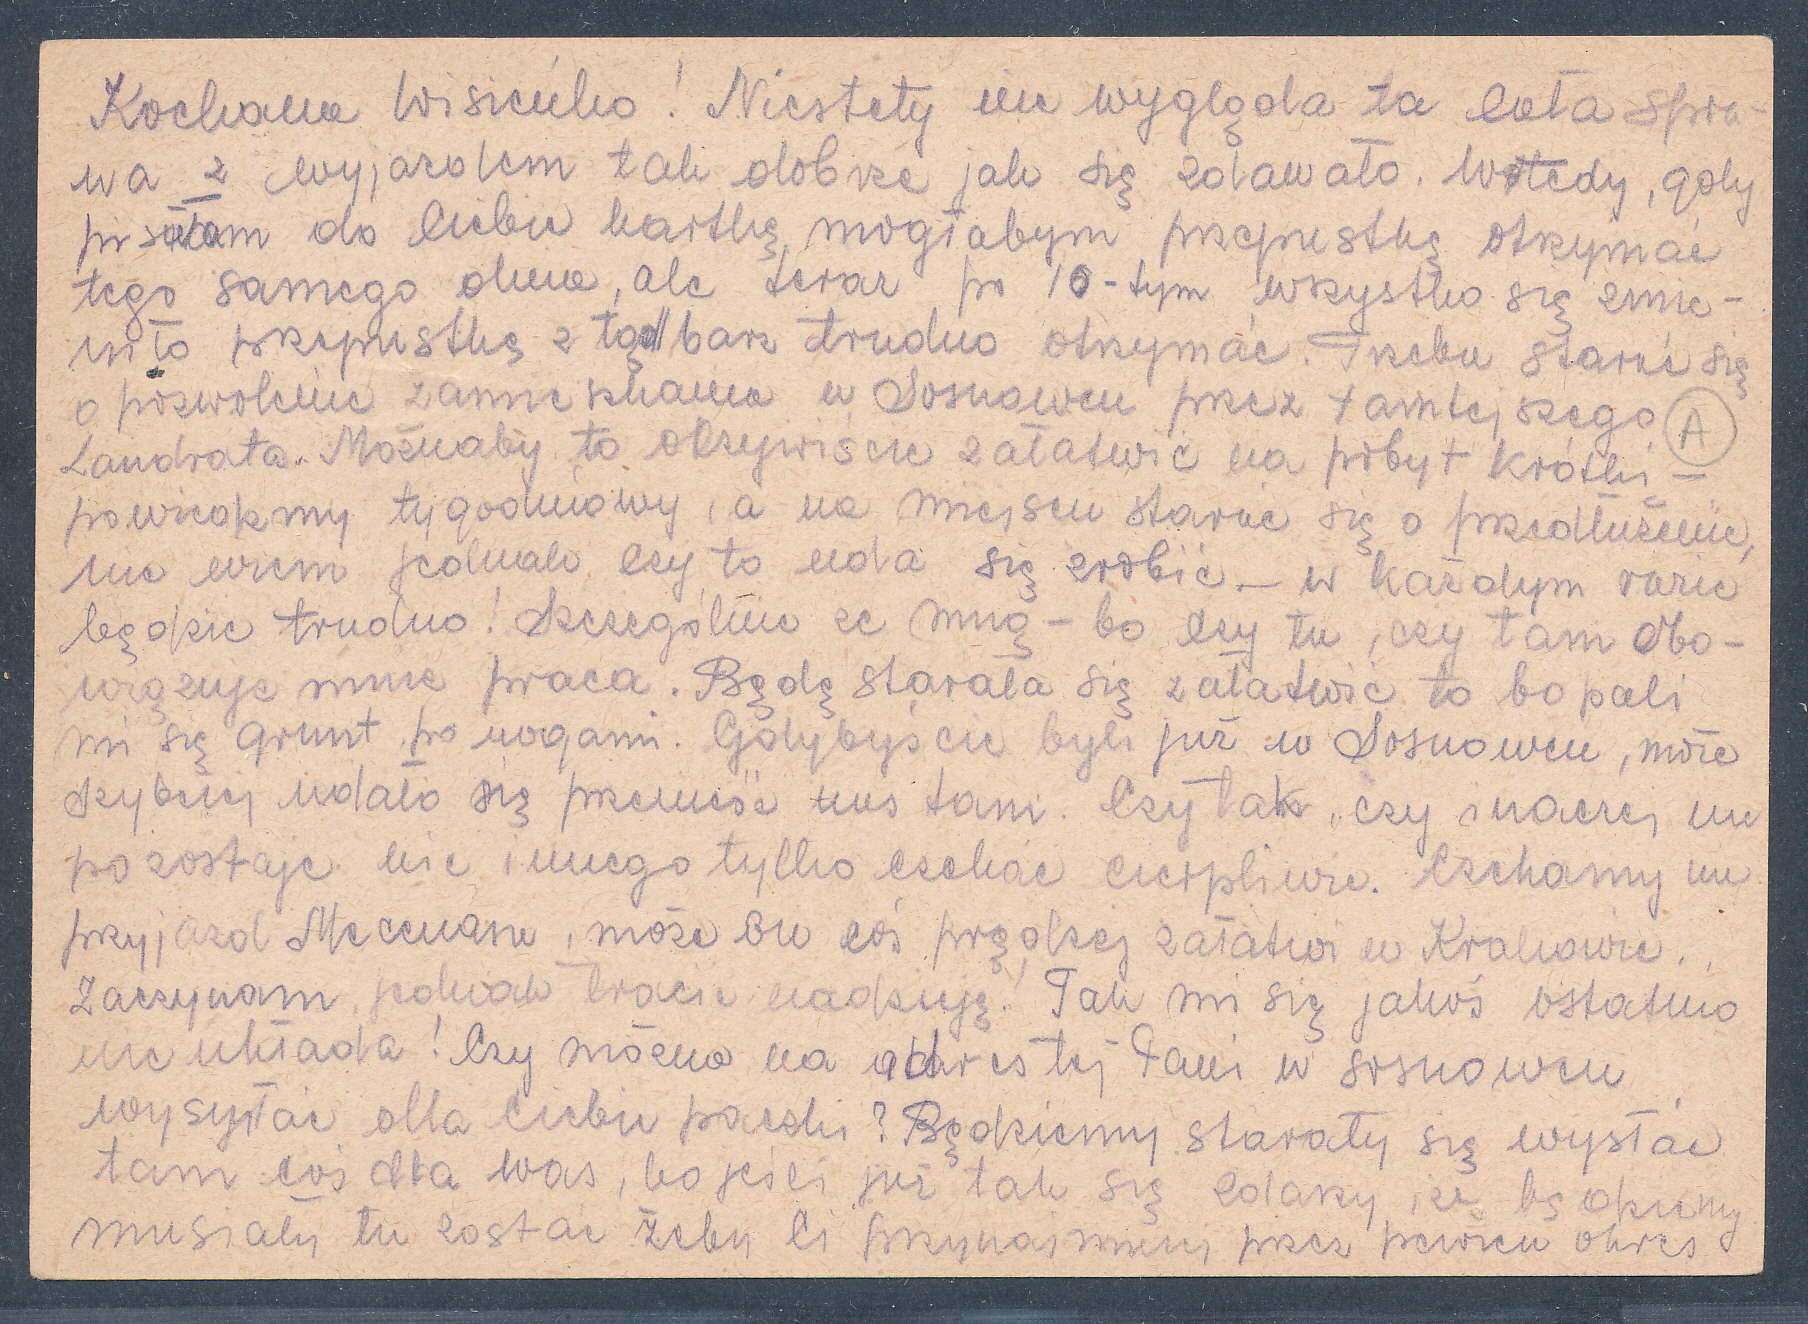 Kochana Wisieńko! Niestety nie wygląda ta cała spra-
wa z wyjazdem tak dobrze jak się zdawało. Wtedy, gdy
pisałam do Ciebie kartkę, mogłabym przepustkę otrzymać
tego samego dnia, ale teraz po 10-tym wszystko się zmie-
niło przepustkę z tąd barz trudno otrzymać. Trzeba starać się
o pozwolenie zamieszkania w Sosnowcu przez tamtejszego
Landrata. Możnaby to oczywiście załatwić na pobyt krótki –
powiedzmy tygodniowy, a na miejscu starać się o przedłużenie,
nie wiem jednak czy to uda się zrobić – w każdym razie
będzie trudno! Szczególnie ze mną – bo czy tu, czy tam obo-
wiązuje mnie praca. Będę starała się załatwić to bo pali
mi się grunt po nogami. Gdybyście byli już w Sosnowcu, może
szybciej udało się przenieść nas tam. Czy tak, czy inaczej nie
pozostaje nic innego tylko czekać cierpliwie. Czekamy na
przyjazd Mecenasa, może on coś prędzej załatwi w Krakowie.
Zaczynam jednak tracić nadzieję! Tak mi się jakoś ostatnio
nie układa! Czy można na adres tej Pani w Sosnowcu
wysyłać dla Ciebie paczki? Będziemy starały się wysłać
tam coś dla Was, bo jeśli już tak się zdarzy, że będziemy
musiały tu zostać żeby Ci przynajmniej przez pewien okres
A